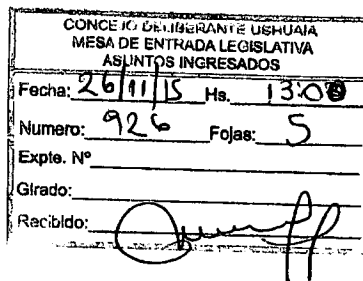 CONCEJO DELIBERANTE USHUAIA
MESA DE ENTRADA LEGISLATIVA
ASUNTOS INGRESADOS
Fecha: 26/11/15 Hs. 13:00
Numero: 926 Fojas: 5
Expte. Nº
Girado:
Recibido: